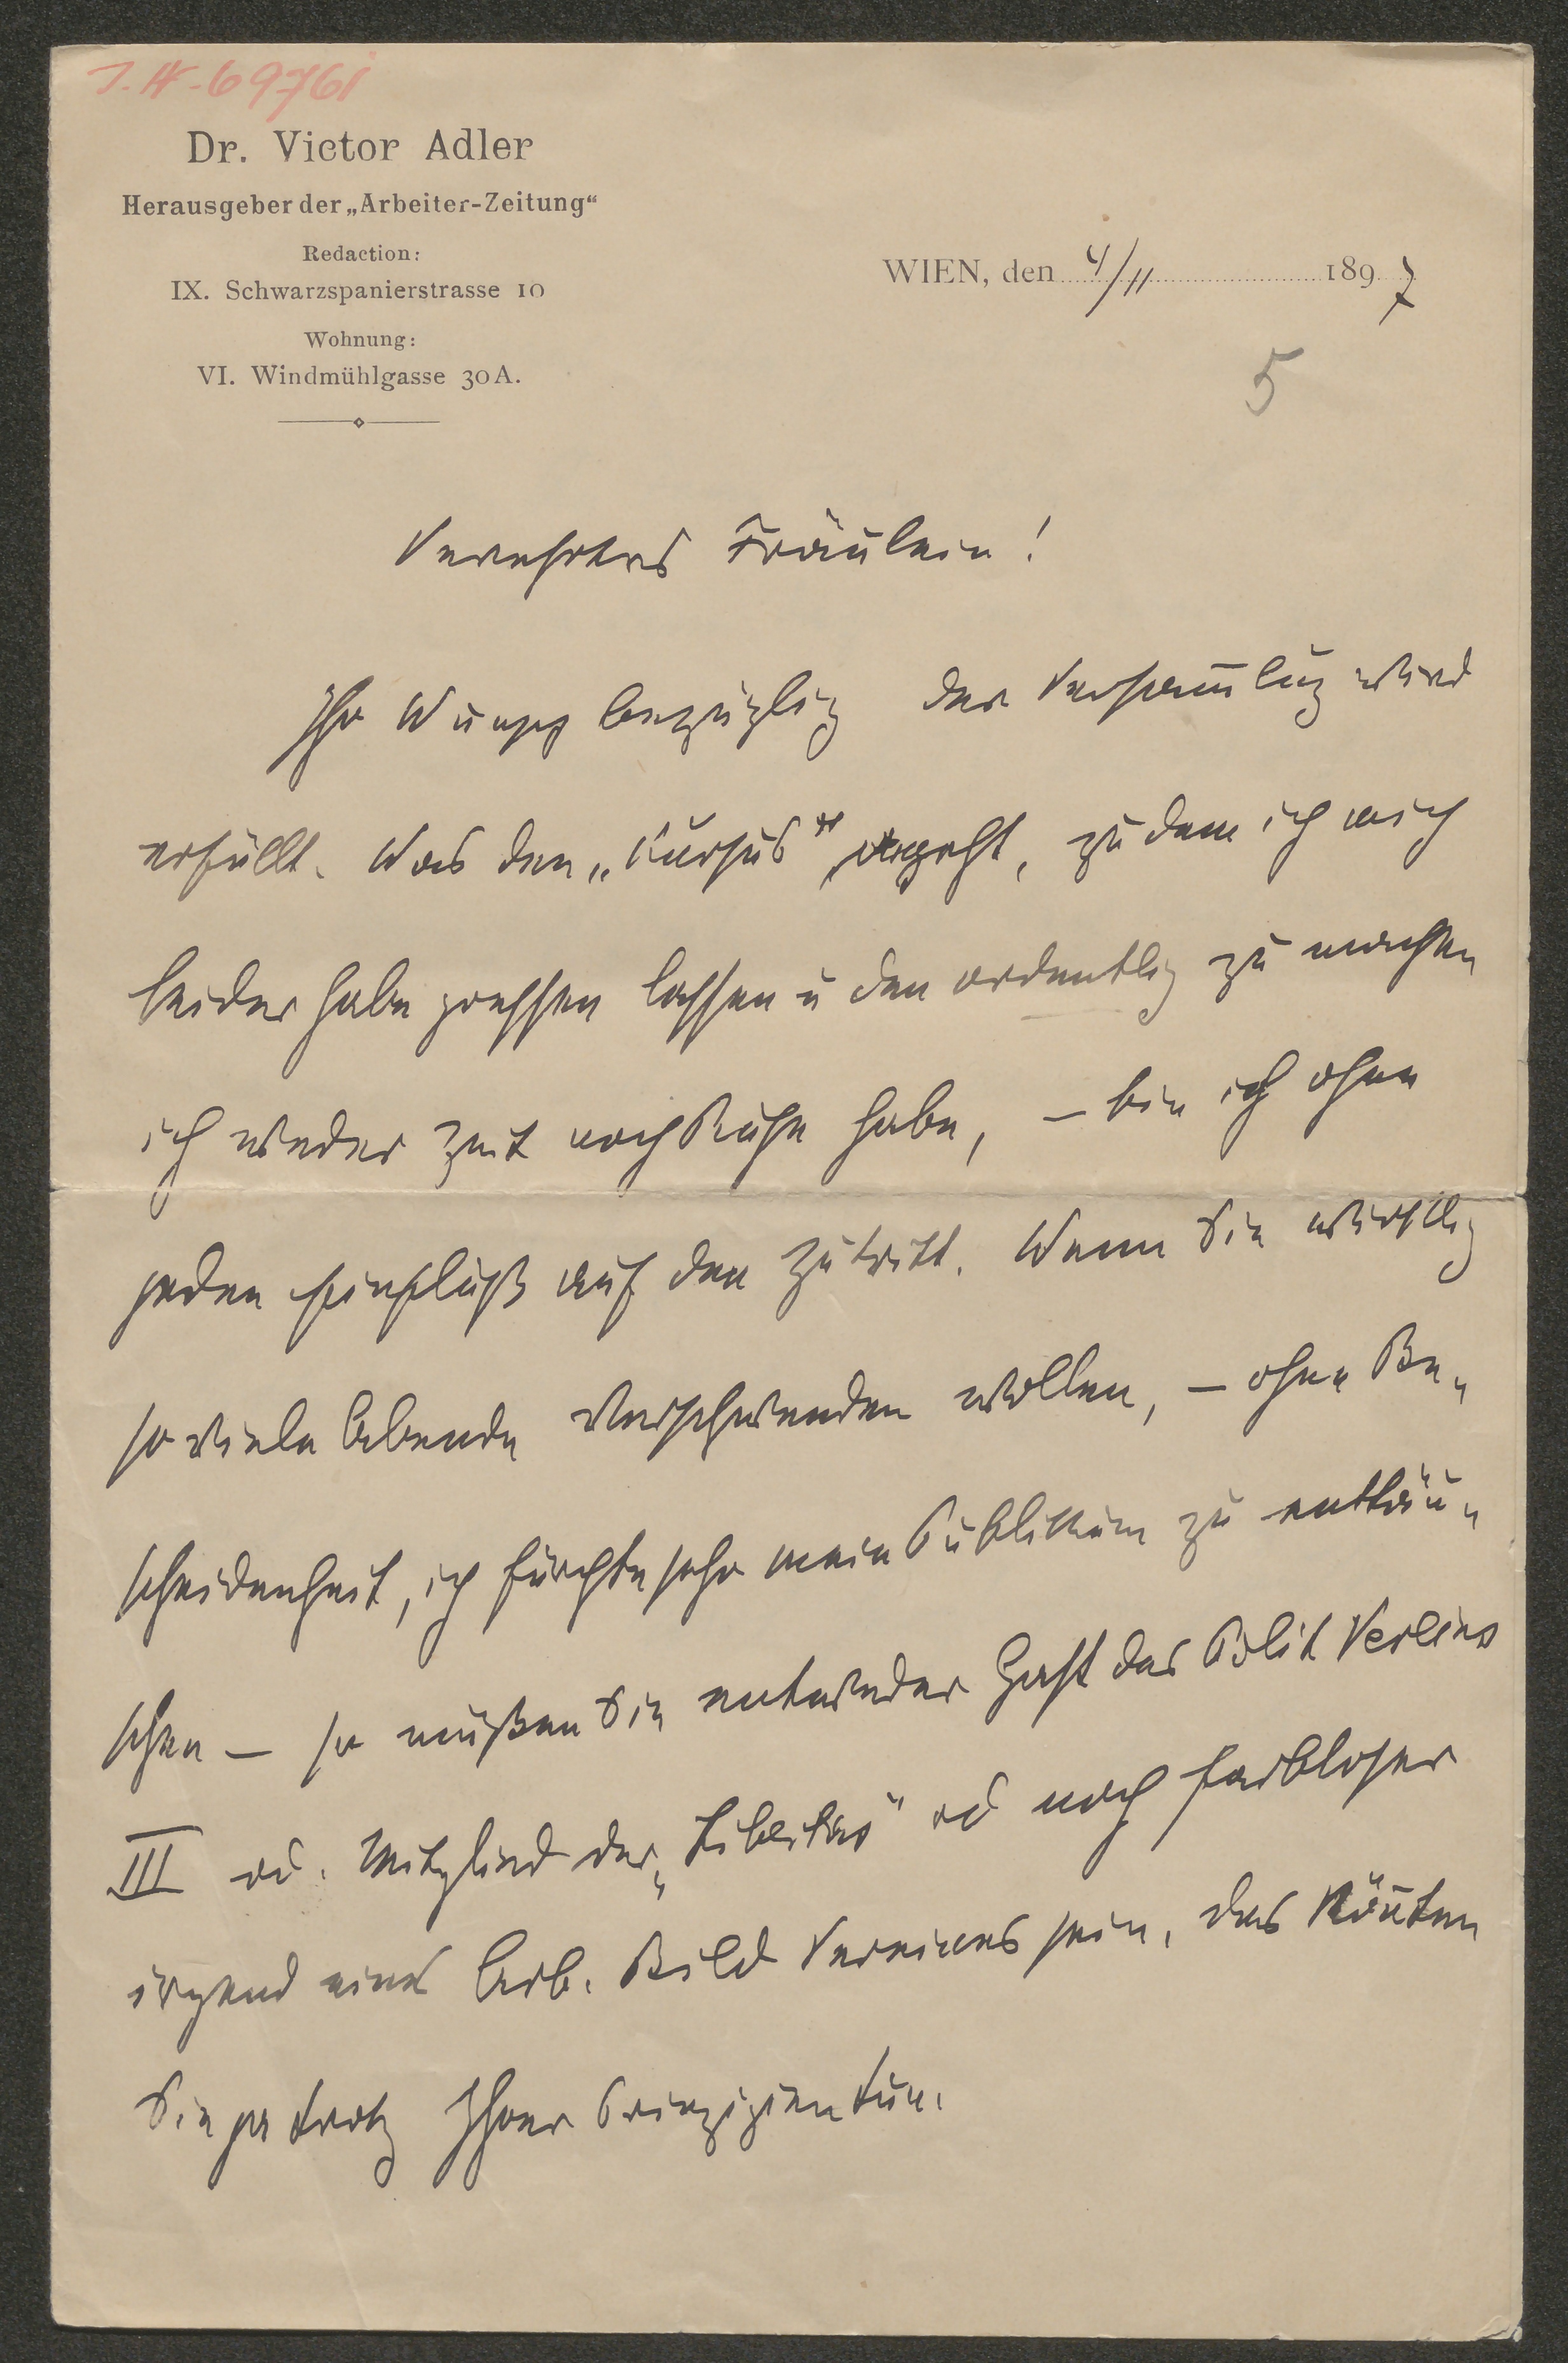 I. N. 69761
Dr. Victor Adler
Herausgeber der „Arbeiter-Zeitung“
Redaction:
IX. Schwarzspanierstrasse 10
Wohnung:
VI. Windmühlgasse 30A.
WIEN, den 4/11 1897
5
Verehrtes Fräulein!
Ihr Wunsch bezüglich der Versam̄lung wird
erfüllt. Was den „Kursus“ angeht, zu dem ich mich
leider habe pressen lassen u den ordentlich zu machen
ich weder Zeit noch Ruhe habe, – bin ich ohne
jeden Einfluß auf den Zutritt. Wenn Sie wirklich
so viele Abende verschwenden wollen, – ohne Be„
scheidenheit, ich fürchte sehr mein Publikum zu enttäu„
schen – so müßen Sie entweder Gast des Polit Vereins
III od. Mitglied der „Libertas“ od noch farbloser
irgend eines Arb. Bild Vereines sein, das kön̄ten
Sie ja trotz Ihrer Prinzipien tun.